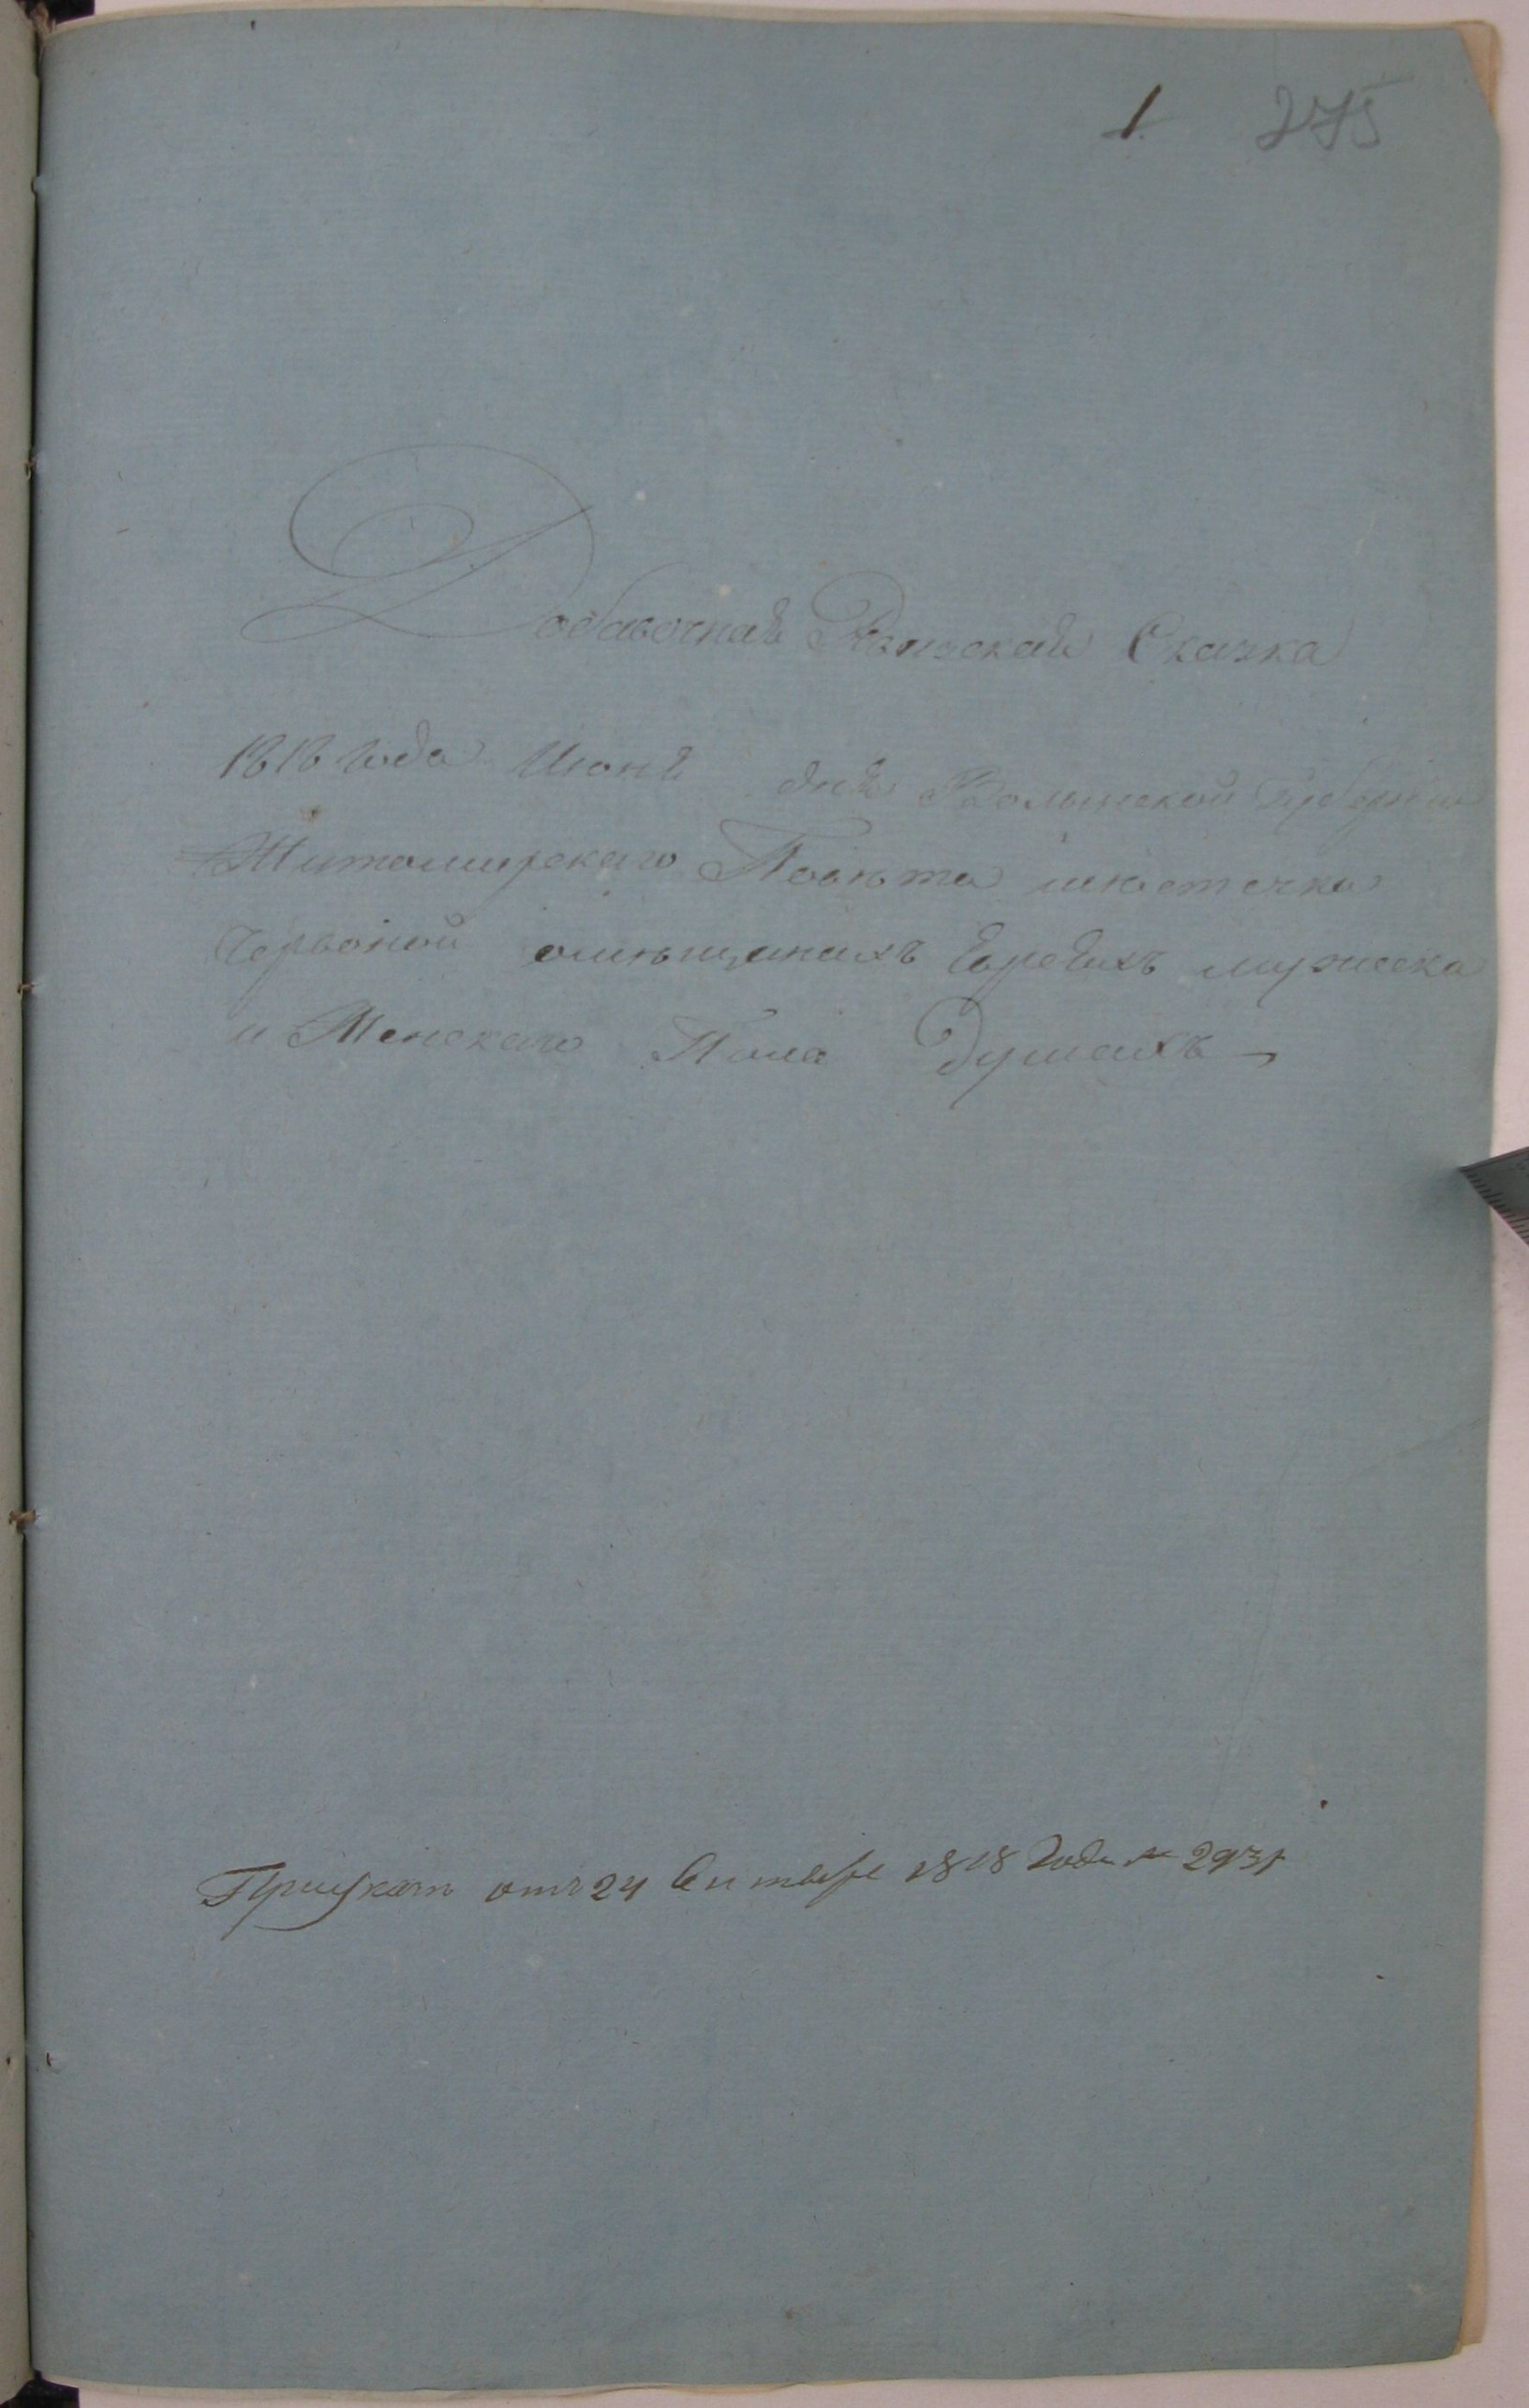 1. 275
Добавочная Ревизская Сказка
1818 года Июня дня Волынской Губернии
Житомирского Повѣта мѣстечка
Червоной омѣщанахъ Евреяхъ мужеска
и Женскаго Пола Душахъ
отъ 24 Сентября 1818 года №